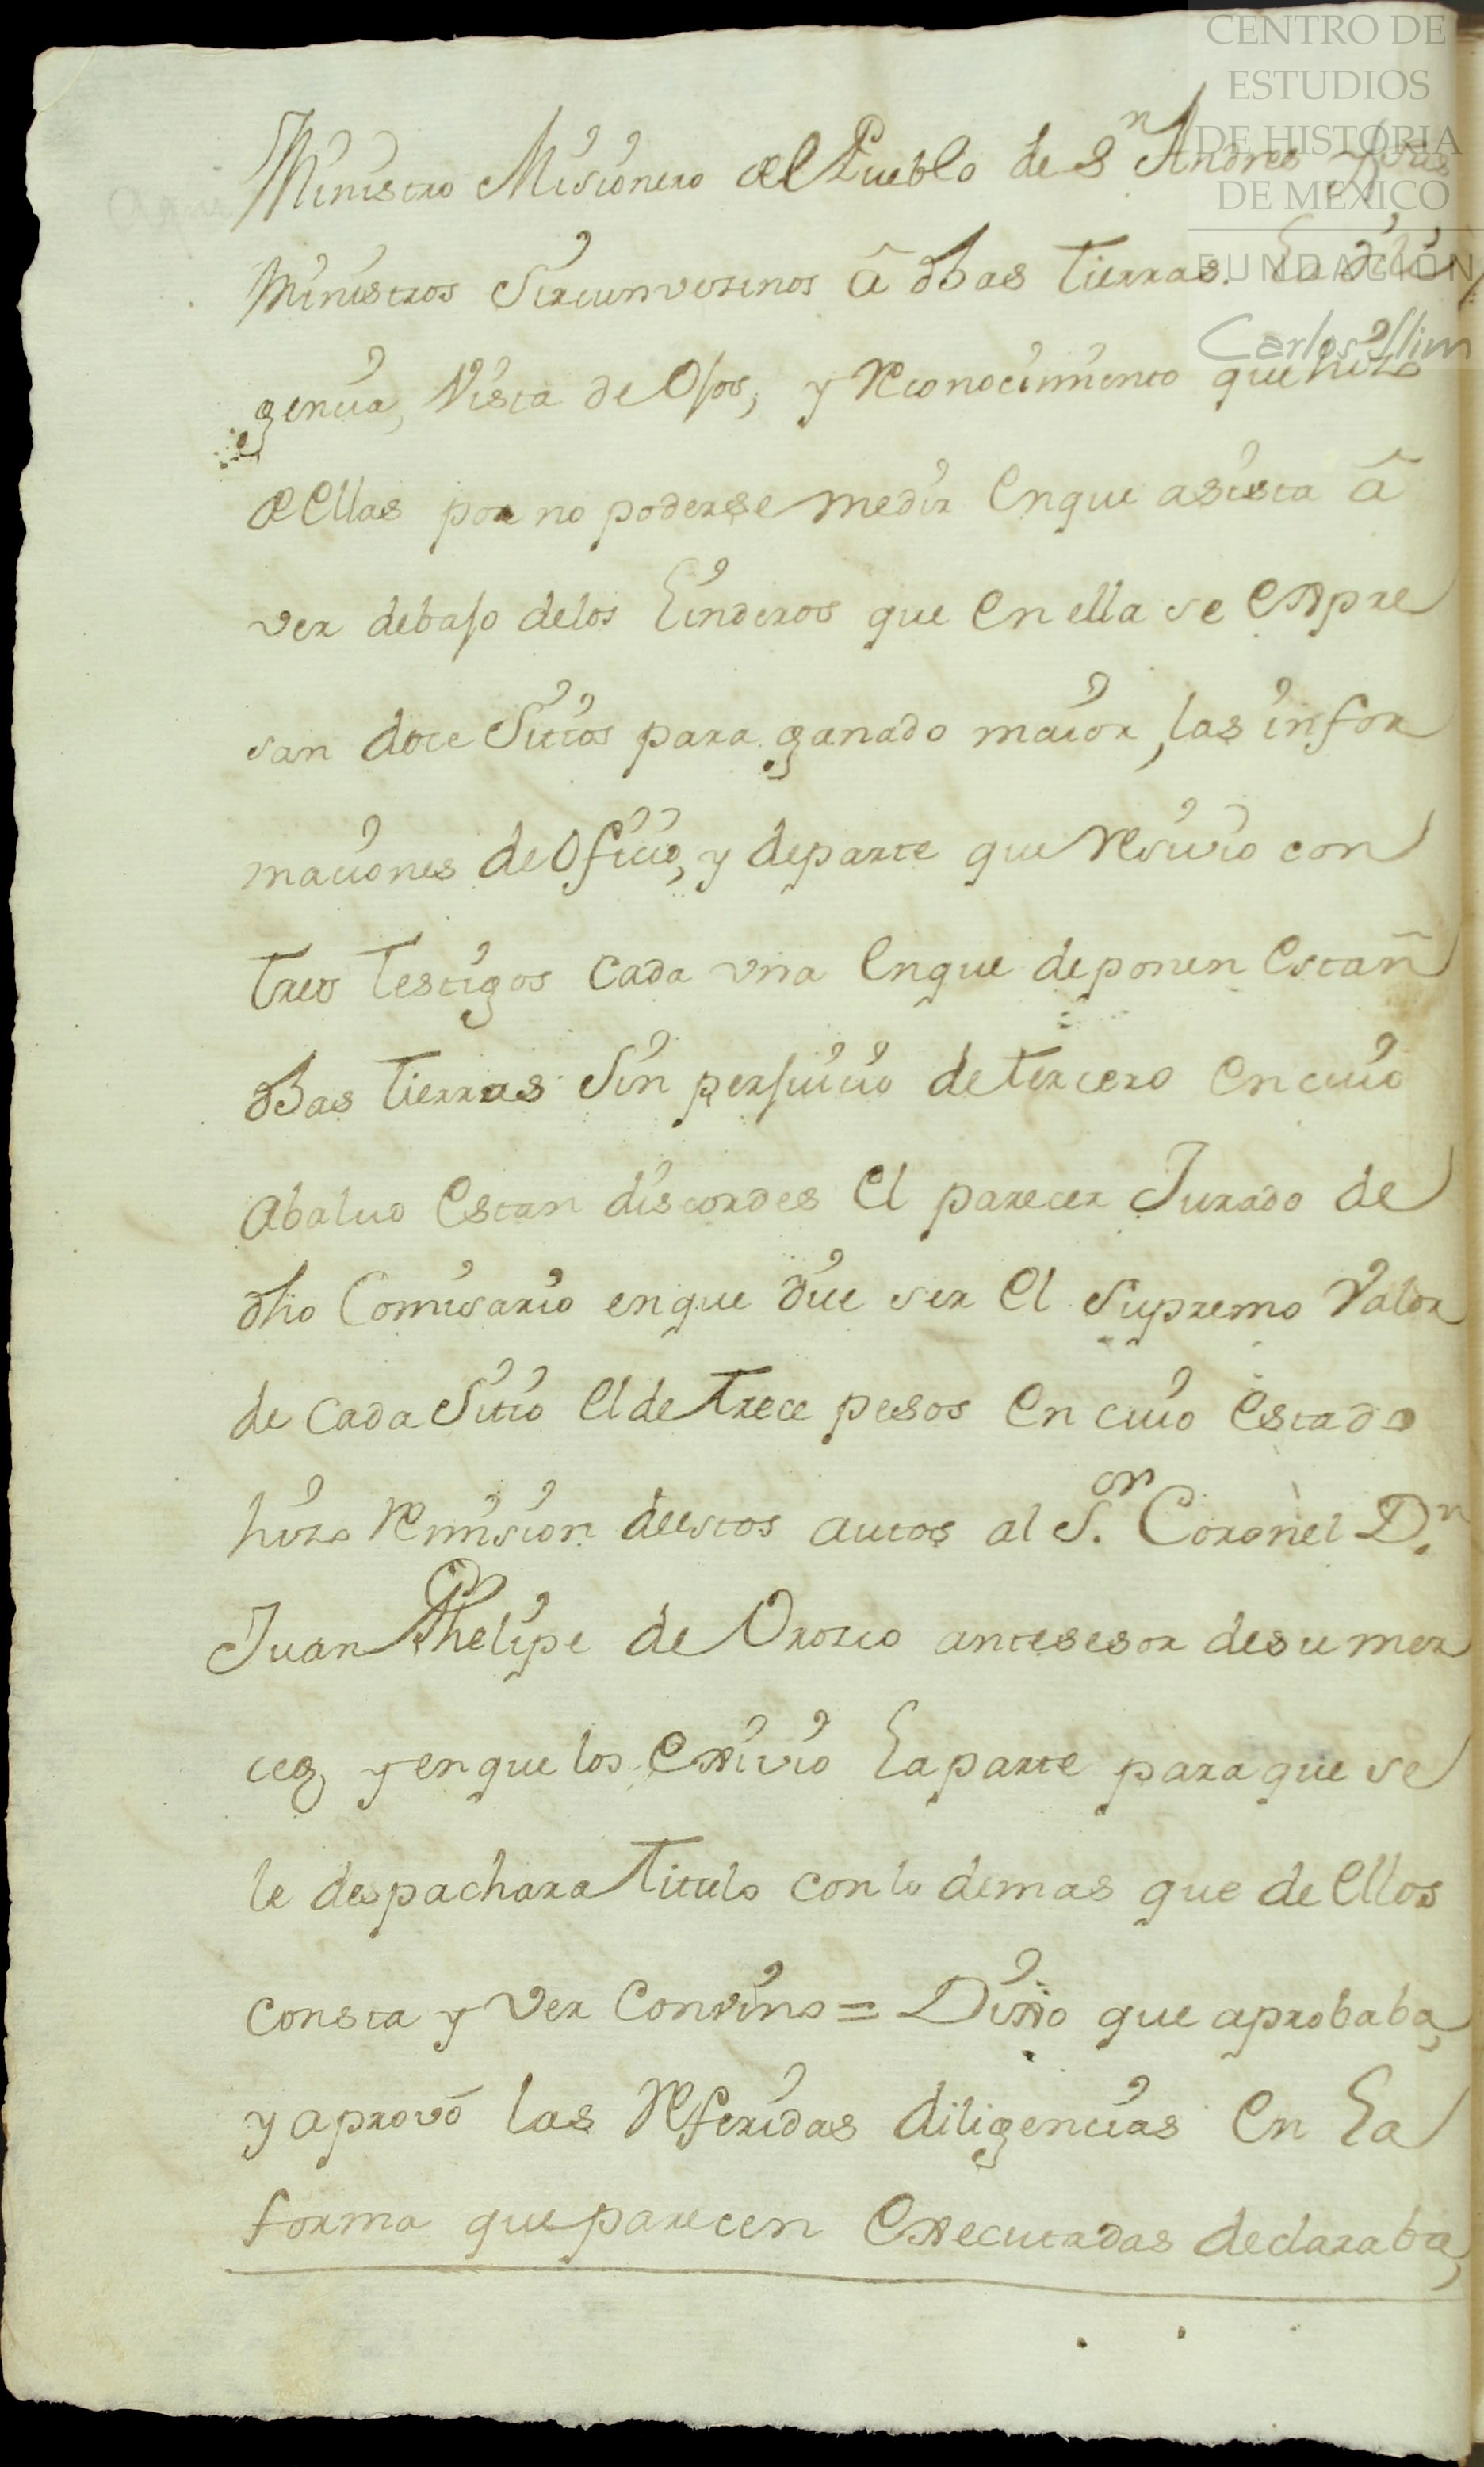 CENTRO DE
ESTUDIOS
DE HISTORIA
DE MÉXICO
FUNDACIÓN
Carlos Slim
Ministro Misionero del Pueblo de Sn Andres y sus
Ministros Sircunvesinos â dhas tierras. La dili
gencia, Vista de Ojos, y Reconocimiento que hizo
de ellas por no poderse medir en que asista â
ver debajo delos Linderos que en ella se expre
san doce Sitios para ganado maior, las infor
maciones de Oficio, y de parte que Resivio con
tres testigos cada una en que deponen estañ
dhas tierras sin perjuicio de tercero en cuio
abaluo estan discordes el parecer Jurado de
dho Comisario en que dice ser el Supremo Valor
de cada Sitio el de trece pesos en cuio estado
hizo Remision deestos autos al S.or Coronel D.n
Juan Phelipe de Orosco antesesor de su mer
ced, y en que los exivio la parte para que se
le despachara titulo con lo demas que de ellos
consta y ver convino = Dixo que aprobaba,
y aprovó las Referidas diligencias en la
forma que parecen executadas declaraba,